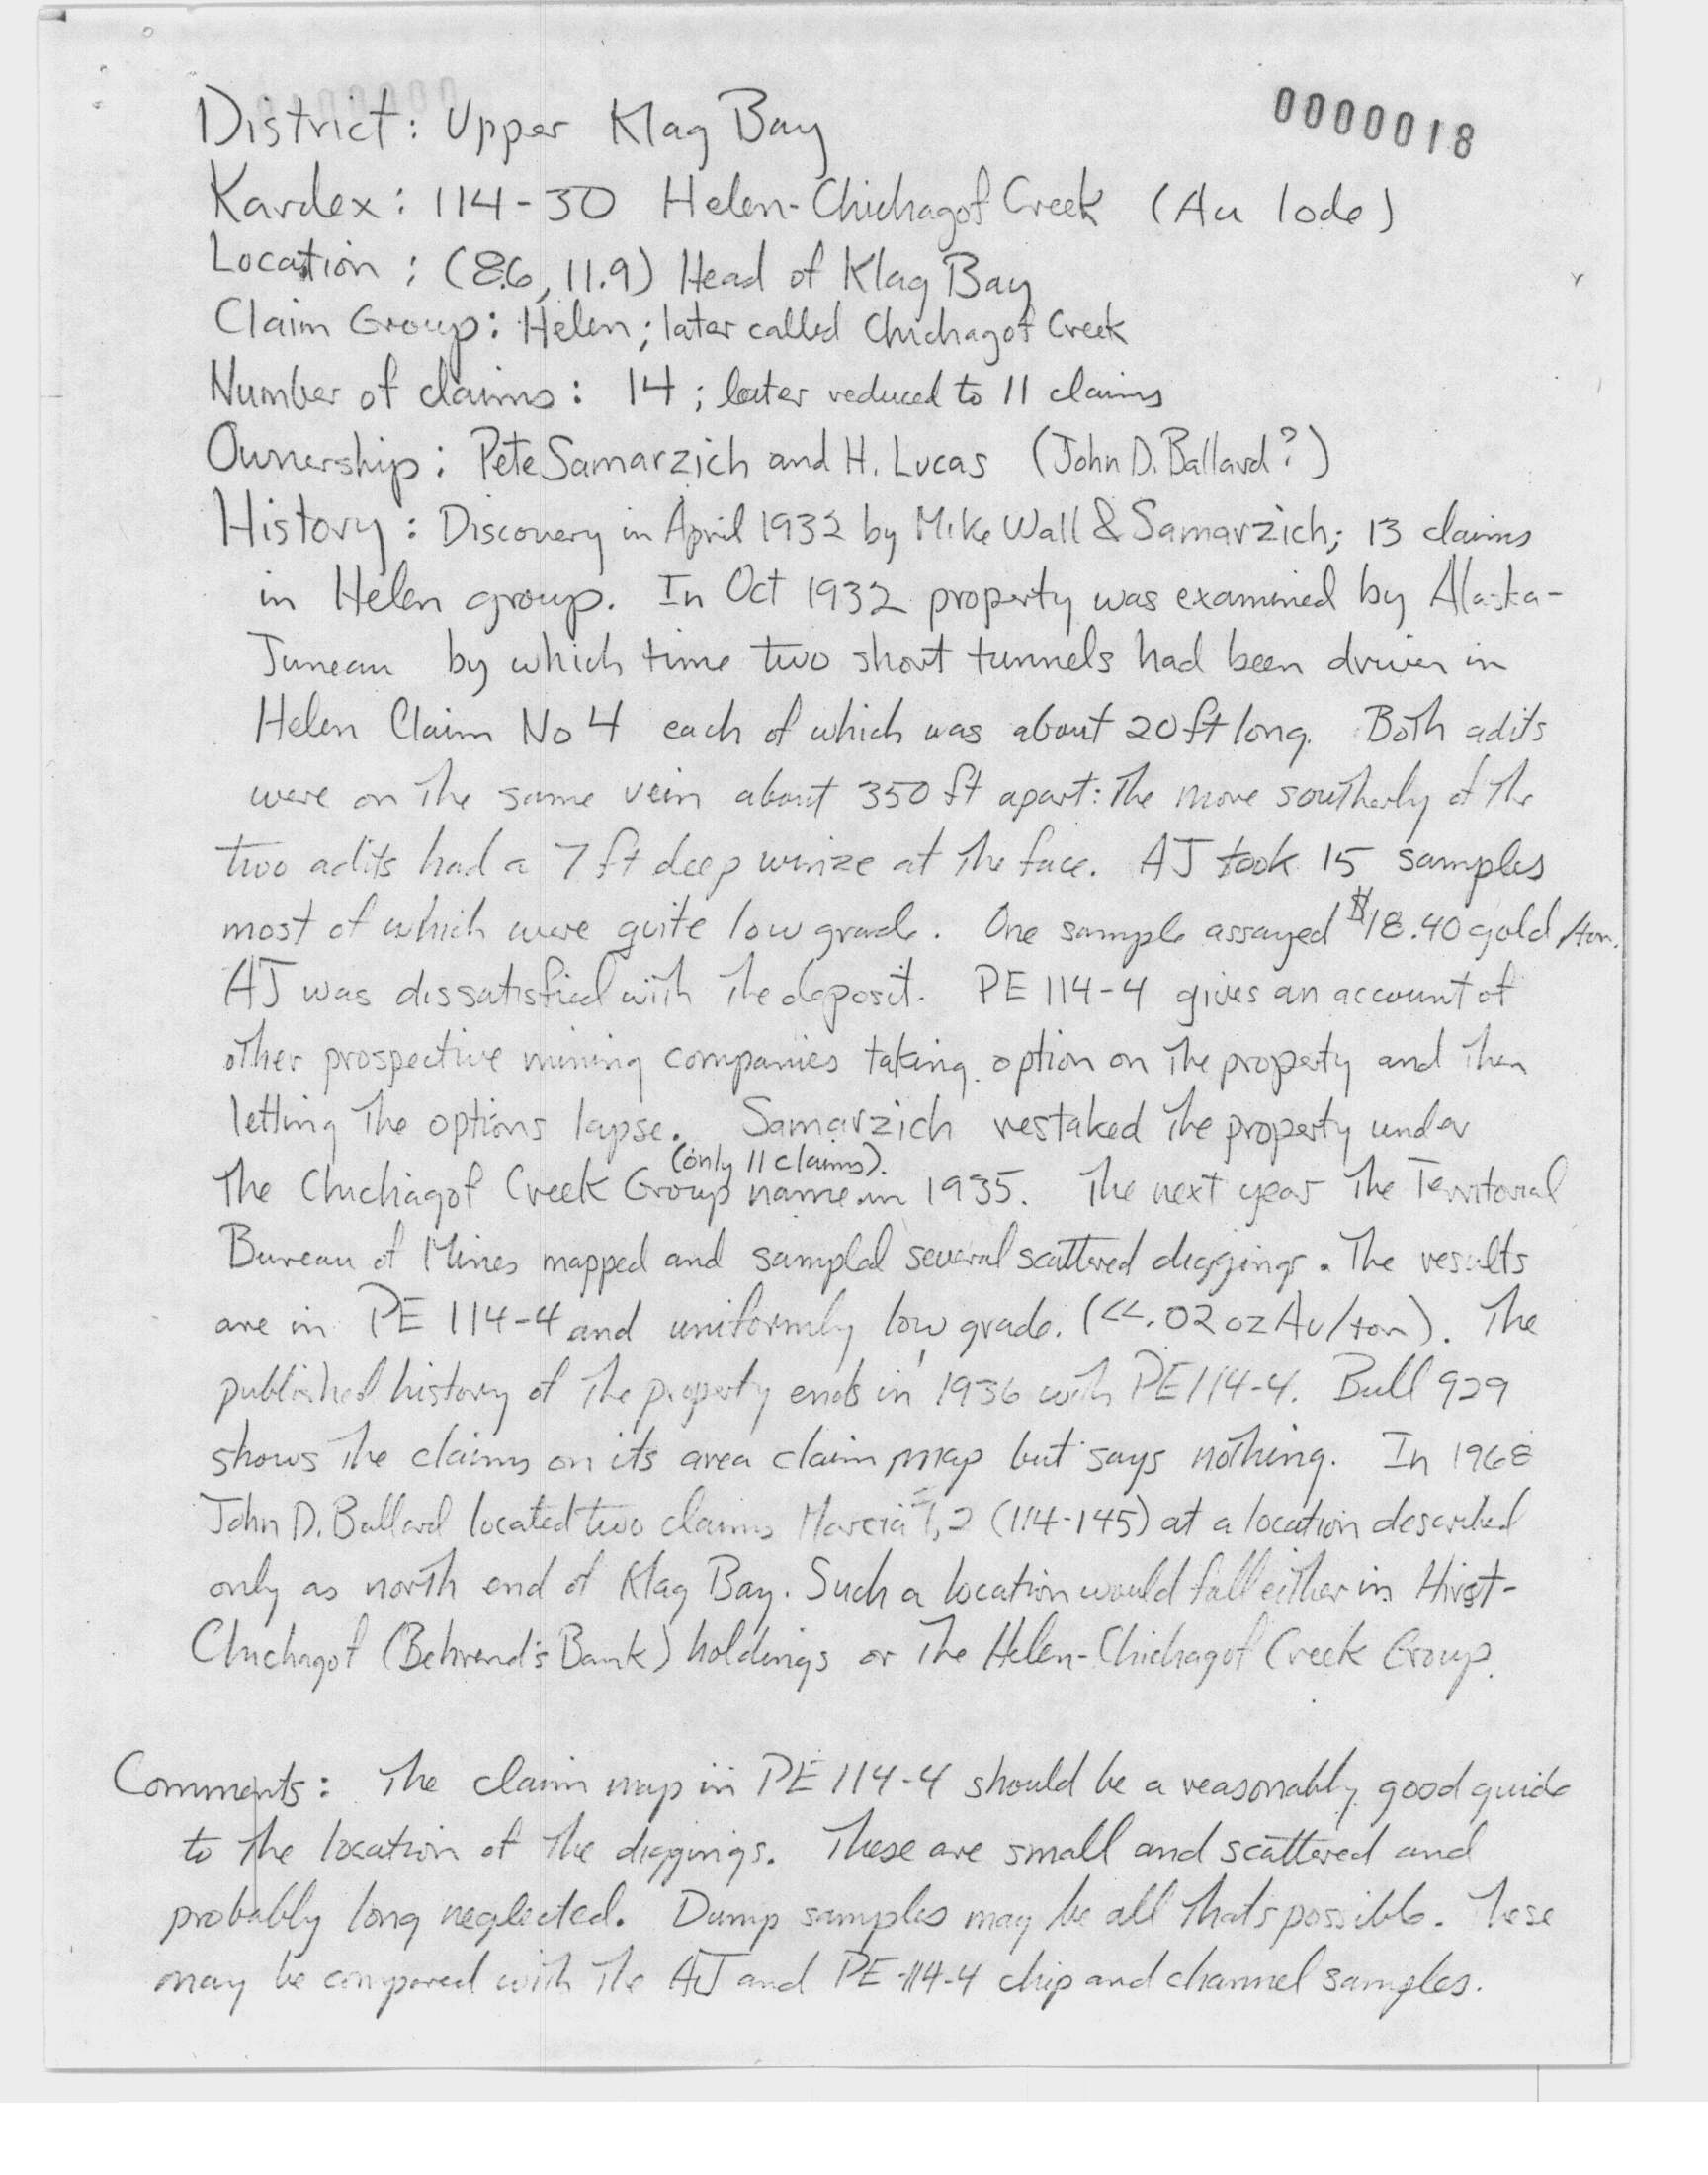 0000018
District: Upper Klag Bay
Kardex: 114-30 Helen-Chichagof Creek (Au lode)
Location: (8.6, 11.9) Head of Klag Bay
Claim Group: Helen; later called Chichagof Creek
Number of claims: 14; later reduced to 11 claims
Ownership: Pete Samarzich and H. Lucas (John D. Ballard?)
History: Discovery in April 1932 by Mike Wall & Samarzich; 13 claims
in Helen group. In Oct 1932 property was examined by Alaska-
Juneau by which time two short tunnels had been driven in
Helen Claim No 4 each of which was about 20 ft long. Both adits
were on the same vein about 350 ft apart: the more southerly of the
two adits had a 7 ft deep winze at the face. AJ took 15 samples
most of which were quite low grade. One sample assayed $18.40 gold/ton.
AJ was dissatisfied with the deposit. PE 114-4 gives an account of
other prospective mining companies taking option on the property and then
letting the options lapse. Samarzich restaked the property under
(only 11 claims).
the Chichagof Creek Group name in 1935. The next year the Territorial
Bureau of Mines mapped and sampled several scattered diggings. The results
are in PE 114-4 and uniformly low grade. (<<.02 oz Au/ton). The
published history of the property ends in 1936 with PE 114-4. Bull 929
shows the claims on its area claim map but says nothing. In 1968
John D. Ballard located two claims Marcia 1, 2 (114-145) at a location described
only as north end of Klag Bay. Such a location would fall either in Hirst-
Chichagof (Behrend's Bank) holdings or the Helen-Chichagof Creek Group.
Comments: The claim map in PE 114-4 should be a reasonably good guide
to the location of the diggings. These are small and scattered and
probably long neglected. Dump samples may be all that's possible. These
may be compared with the AJ and PE-114-4 chip and channel samples.